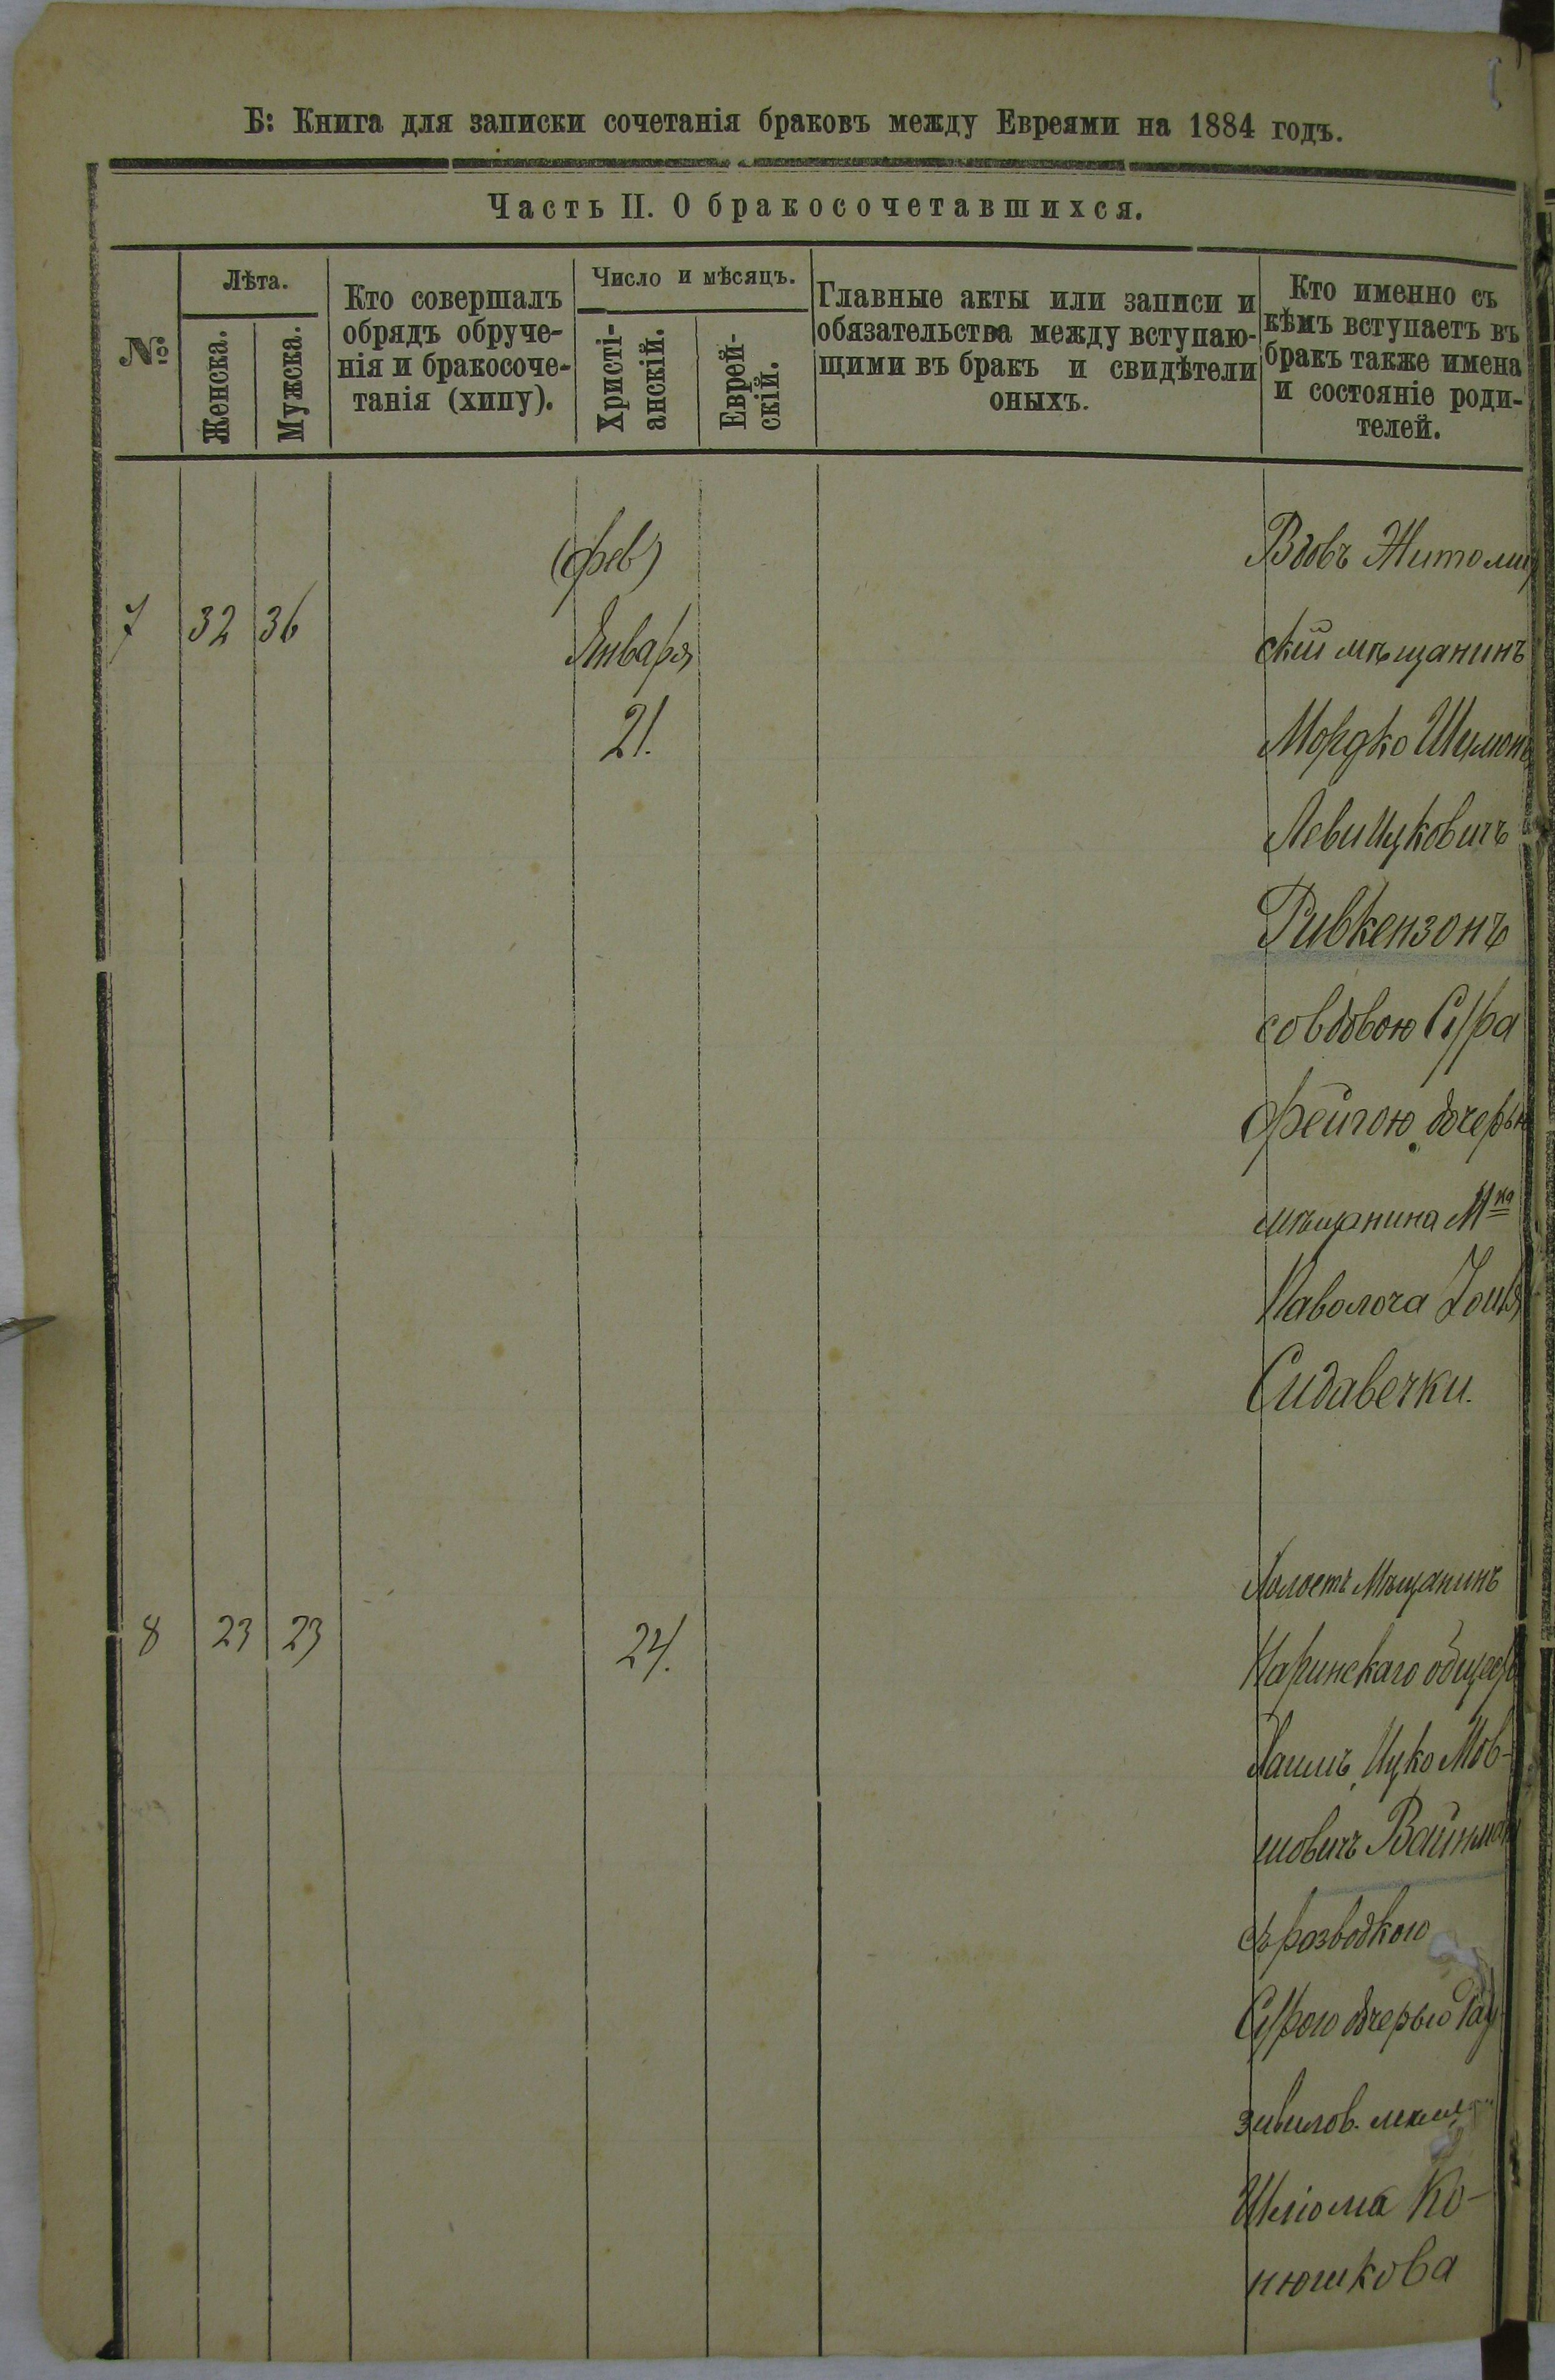 Б: Книга для записки сочетанія браковъ между Евреями на 1884 годъ.
Часть II. О бракосочетавшихся.
№
Лѣта.
Женска.
Мужска.
Кто совершалъ
обрядъ обруче-
нія и бракосоче-
танія (хипу).
Число и мѣсяцъ.
Христі-
анскій.
Еврей-
скій.
Главные акты или записи и
обязательства между вступаю-
щими въ бракъ и свидѣтели
оныхъ.
Кто именно съ
кѣмъ вступаетъ въ
бракъ также имена
и состояніе роди-
телей.
7 32 36
(фев)
Января
21.
Вдовъ Житомир
скій мѣщанинъ
Мордко Шимонъ
Левицковичъ
Ривкензонъ
со вдовою Сура
Фейгою дочерью
мѣщанина Мка
Паволоча
Сидавечки.
8 23 23
24.
Холостъ Мѣщанинъ
Каринскаго общест
Хаимъ Ицко Мов-
шовичъ Вайнман
съ разводкою
Сурою дочерью Рад
зивилов. мѣщ
Шліома Ко-
нюшкова